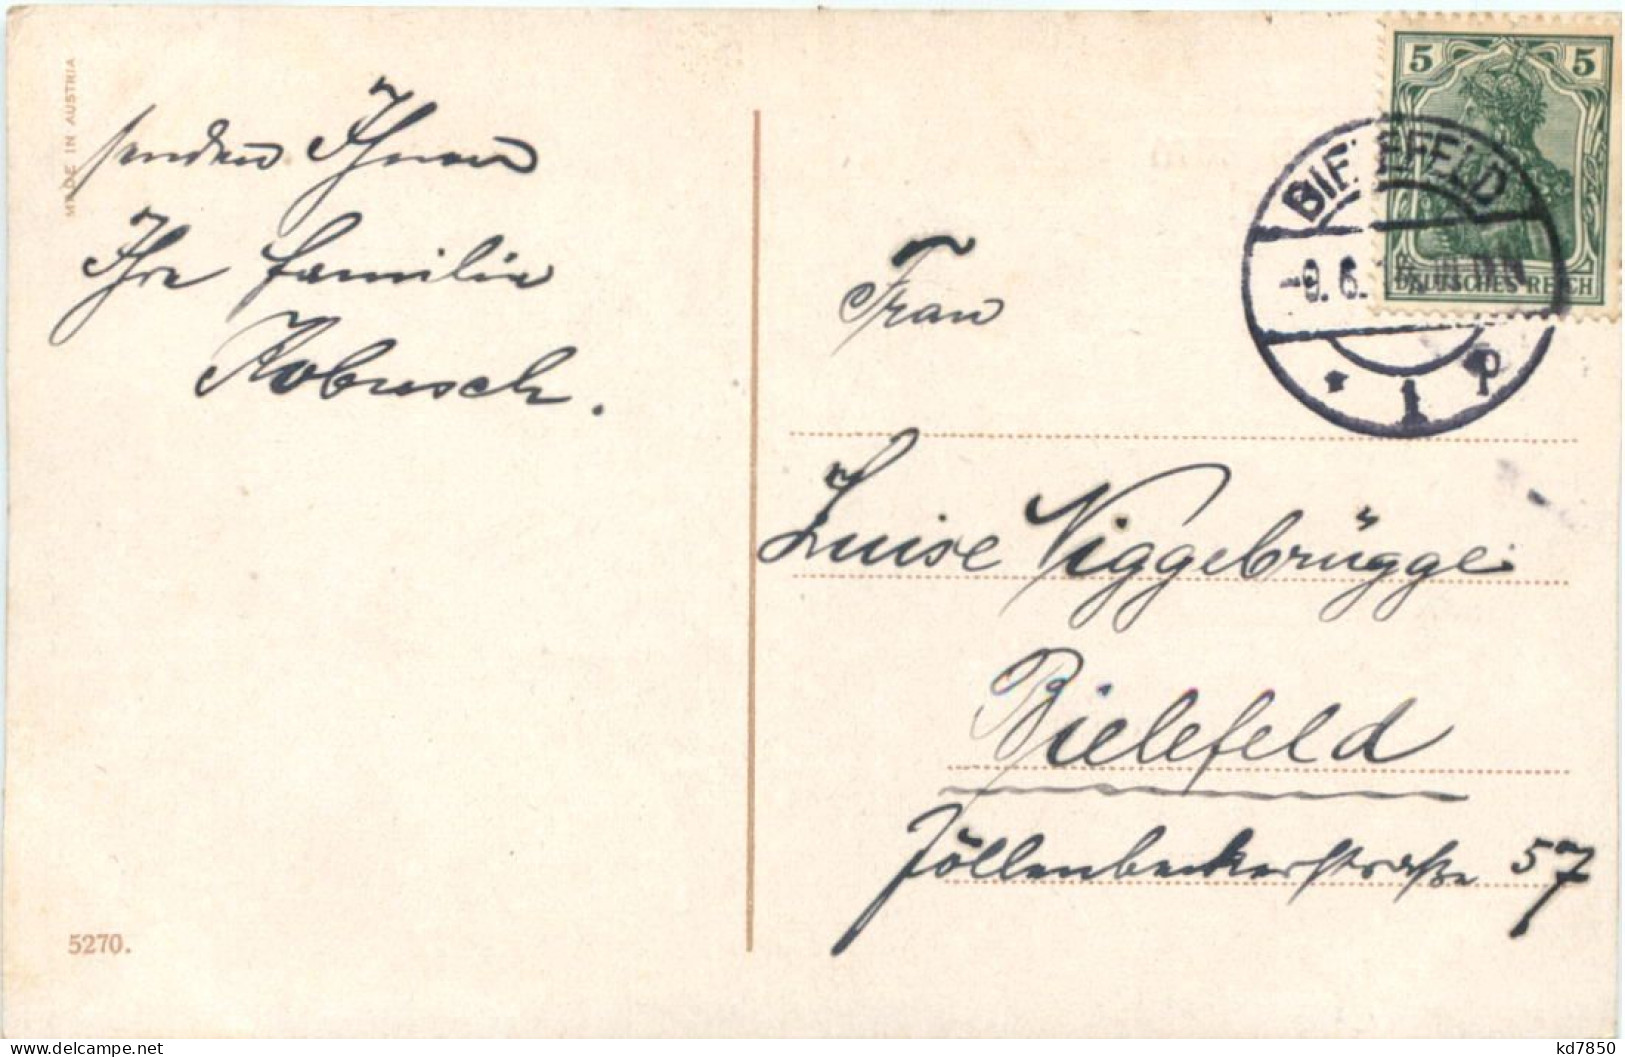 MADE IN AUSTRIA
senden Ihnen
Ihre Familie
Kobusch.
5270.
5 5
DEUTSCHES REICH
BIELEFELD
-9. 6.
* 1 p
Frau
Luise Niggebrügge
Bielefeld
Jöllenbeckerstraße 57
www.delcampe.net
kd7850